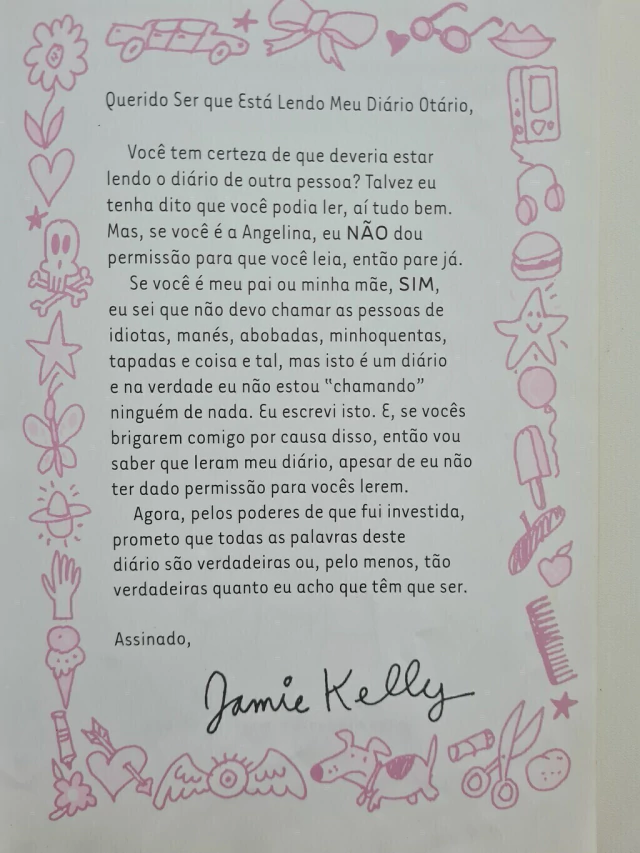 Querido Ser que Está Lendo Meu Diário Otário,
Você tem certeza de que deveria estar
lendo o diário de outra pessoa? Talvez eu
tenha dito que você podia ler, aí tudo bem.
Mas, se você é a Angelina, eu NÃO dou
permissão para que você leia, então pare já.
Se você é meu pai ou minha mãe, SIM,
eu sei que não devo chamar as pessoas de
idiotas, manés, abobadas, minhoquentas,
tapadas e coisa e tal, mas isto é um diário
e na verdade eu não estou "chamando"
ninguém de nada. Eu escrevi isto. E, se vocês
brigarem comigo por causa disso, então vou
saber que leram meu diário, apesar de eu não
ter dado permissão para vocês lerem.
Agora, pelos poderes de que fui investida,
prometo que todas as palavras deste
diário são verdadeiras ou, pelo menos, tão
verdadeiras quanto eu acho que têm que ser.
Assinado,
Jamie Kelly